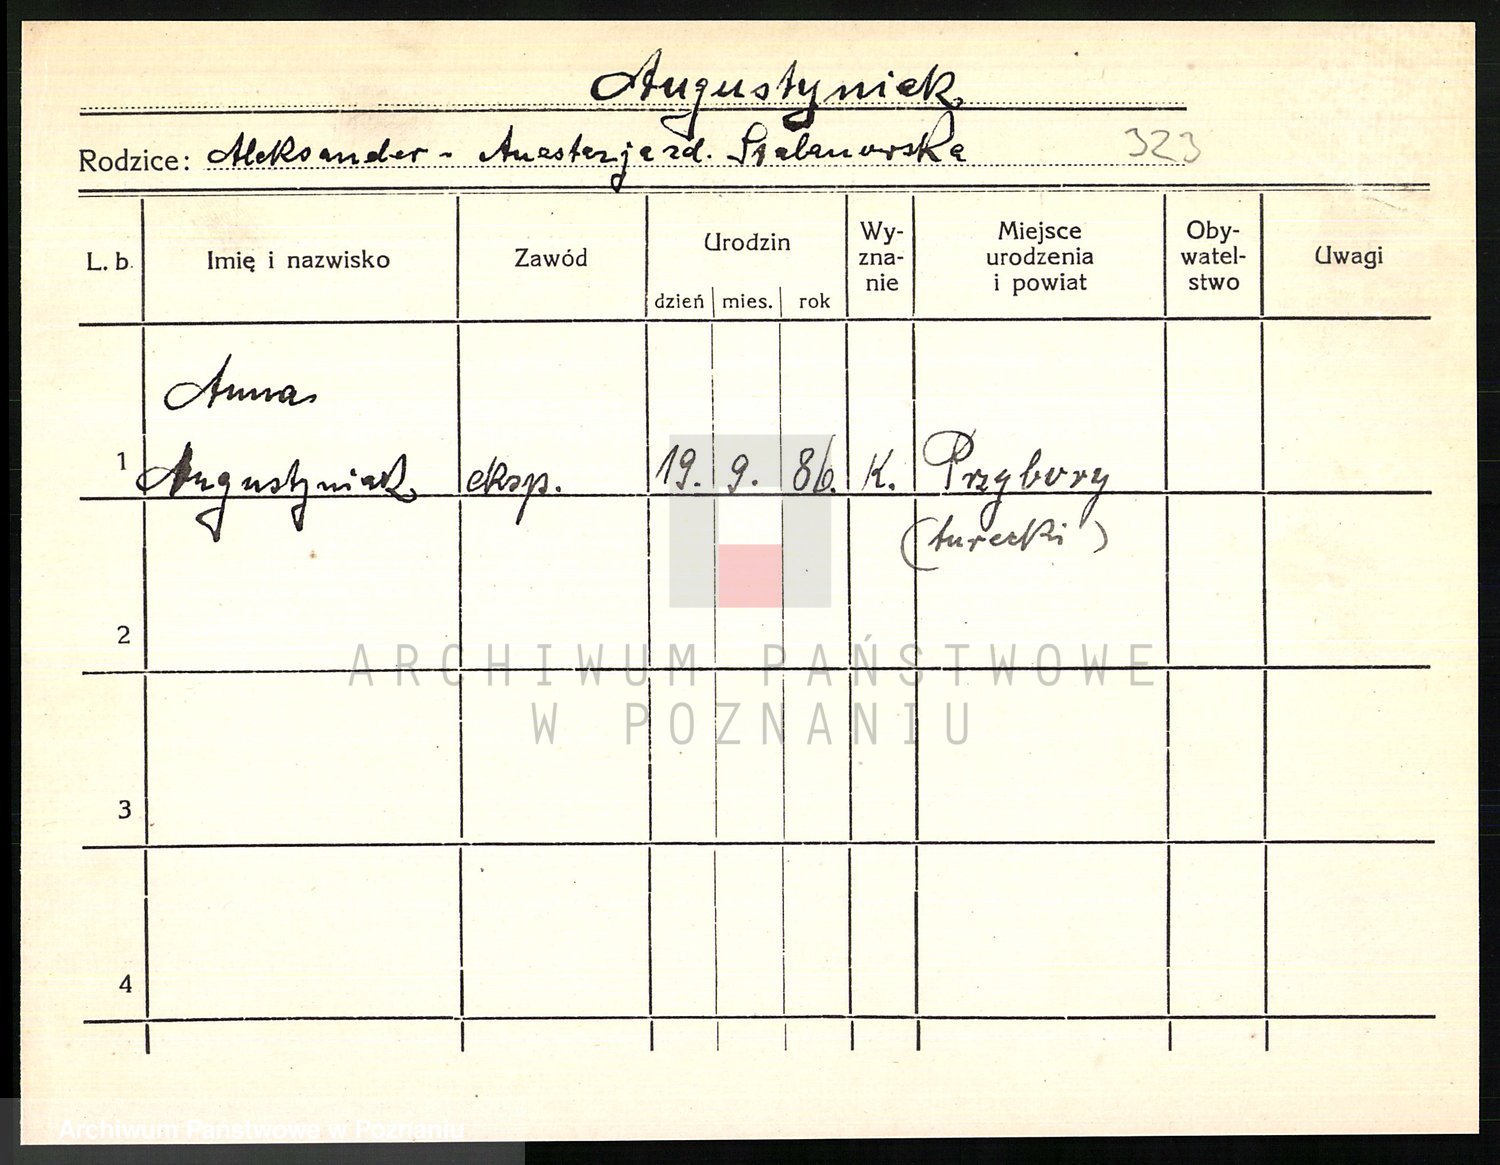 Augustyniak
Rodzice: Aleksander - Anastazja zd. Szalanowska 323
L. b. Imię i nazwisko Zawód Urodzin dzień mies. rok Wy-zna-nie Miejsce urodzenia i powiat Oby-watel-stwo Uwagi
Anna
1 Augustyniak eksp. 19. 9. 86. K. Przybory
(turecki)
2
ARCHIWUM PAŃSTWOWE
W POZNANIU
3
4
Archiwum Państwowe w Poznaniu